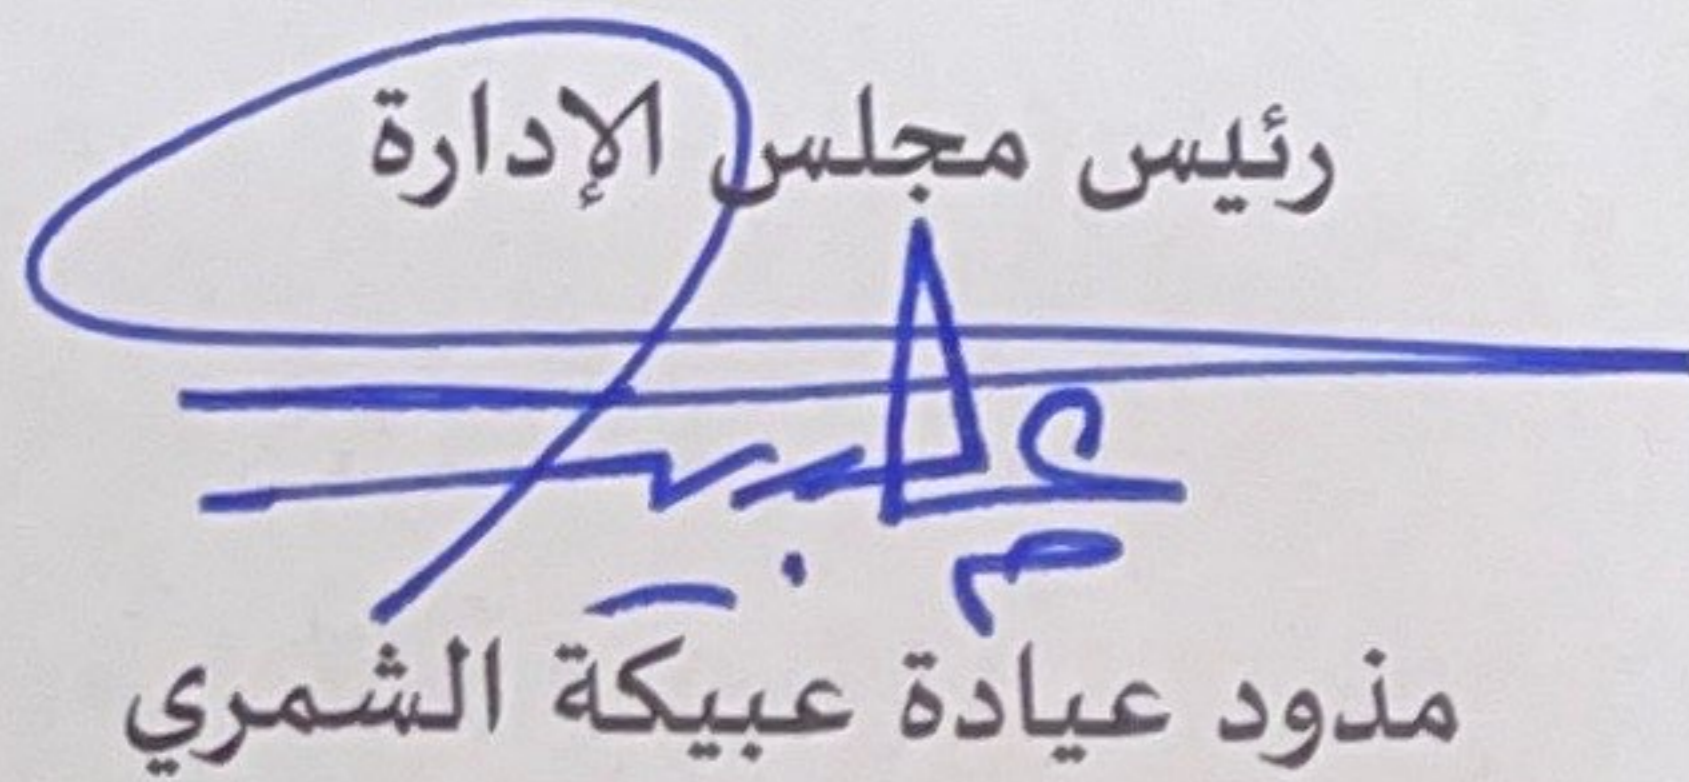 رئيس مجلس الإدارة
مذود عيادة عبيكة الشمري